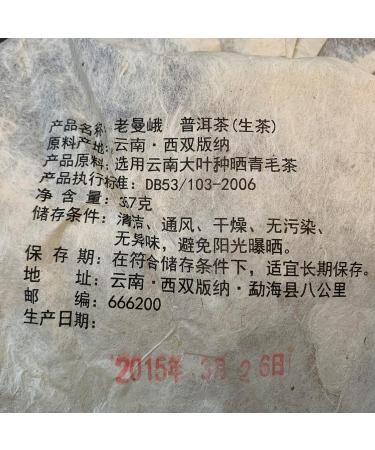 产品名称：老曼峨　普洱茶(生茶)
原料产地：云南·西双版纳
产品原料：选用云南大叶种晒青毛茶
产品执行标准：DB53/103-2006
净含量：3.7克
储存条件：清洁、通风、干燥、无污染、
无异味，避免阳光曝晒。
保存期：在符合储存条件下，适宜长期保存。
地　址：云南·西双版纳·勐海县八公里
邮　编：666200
生产日期：
2015年 3月 26日